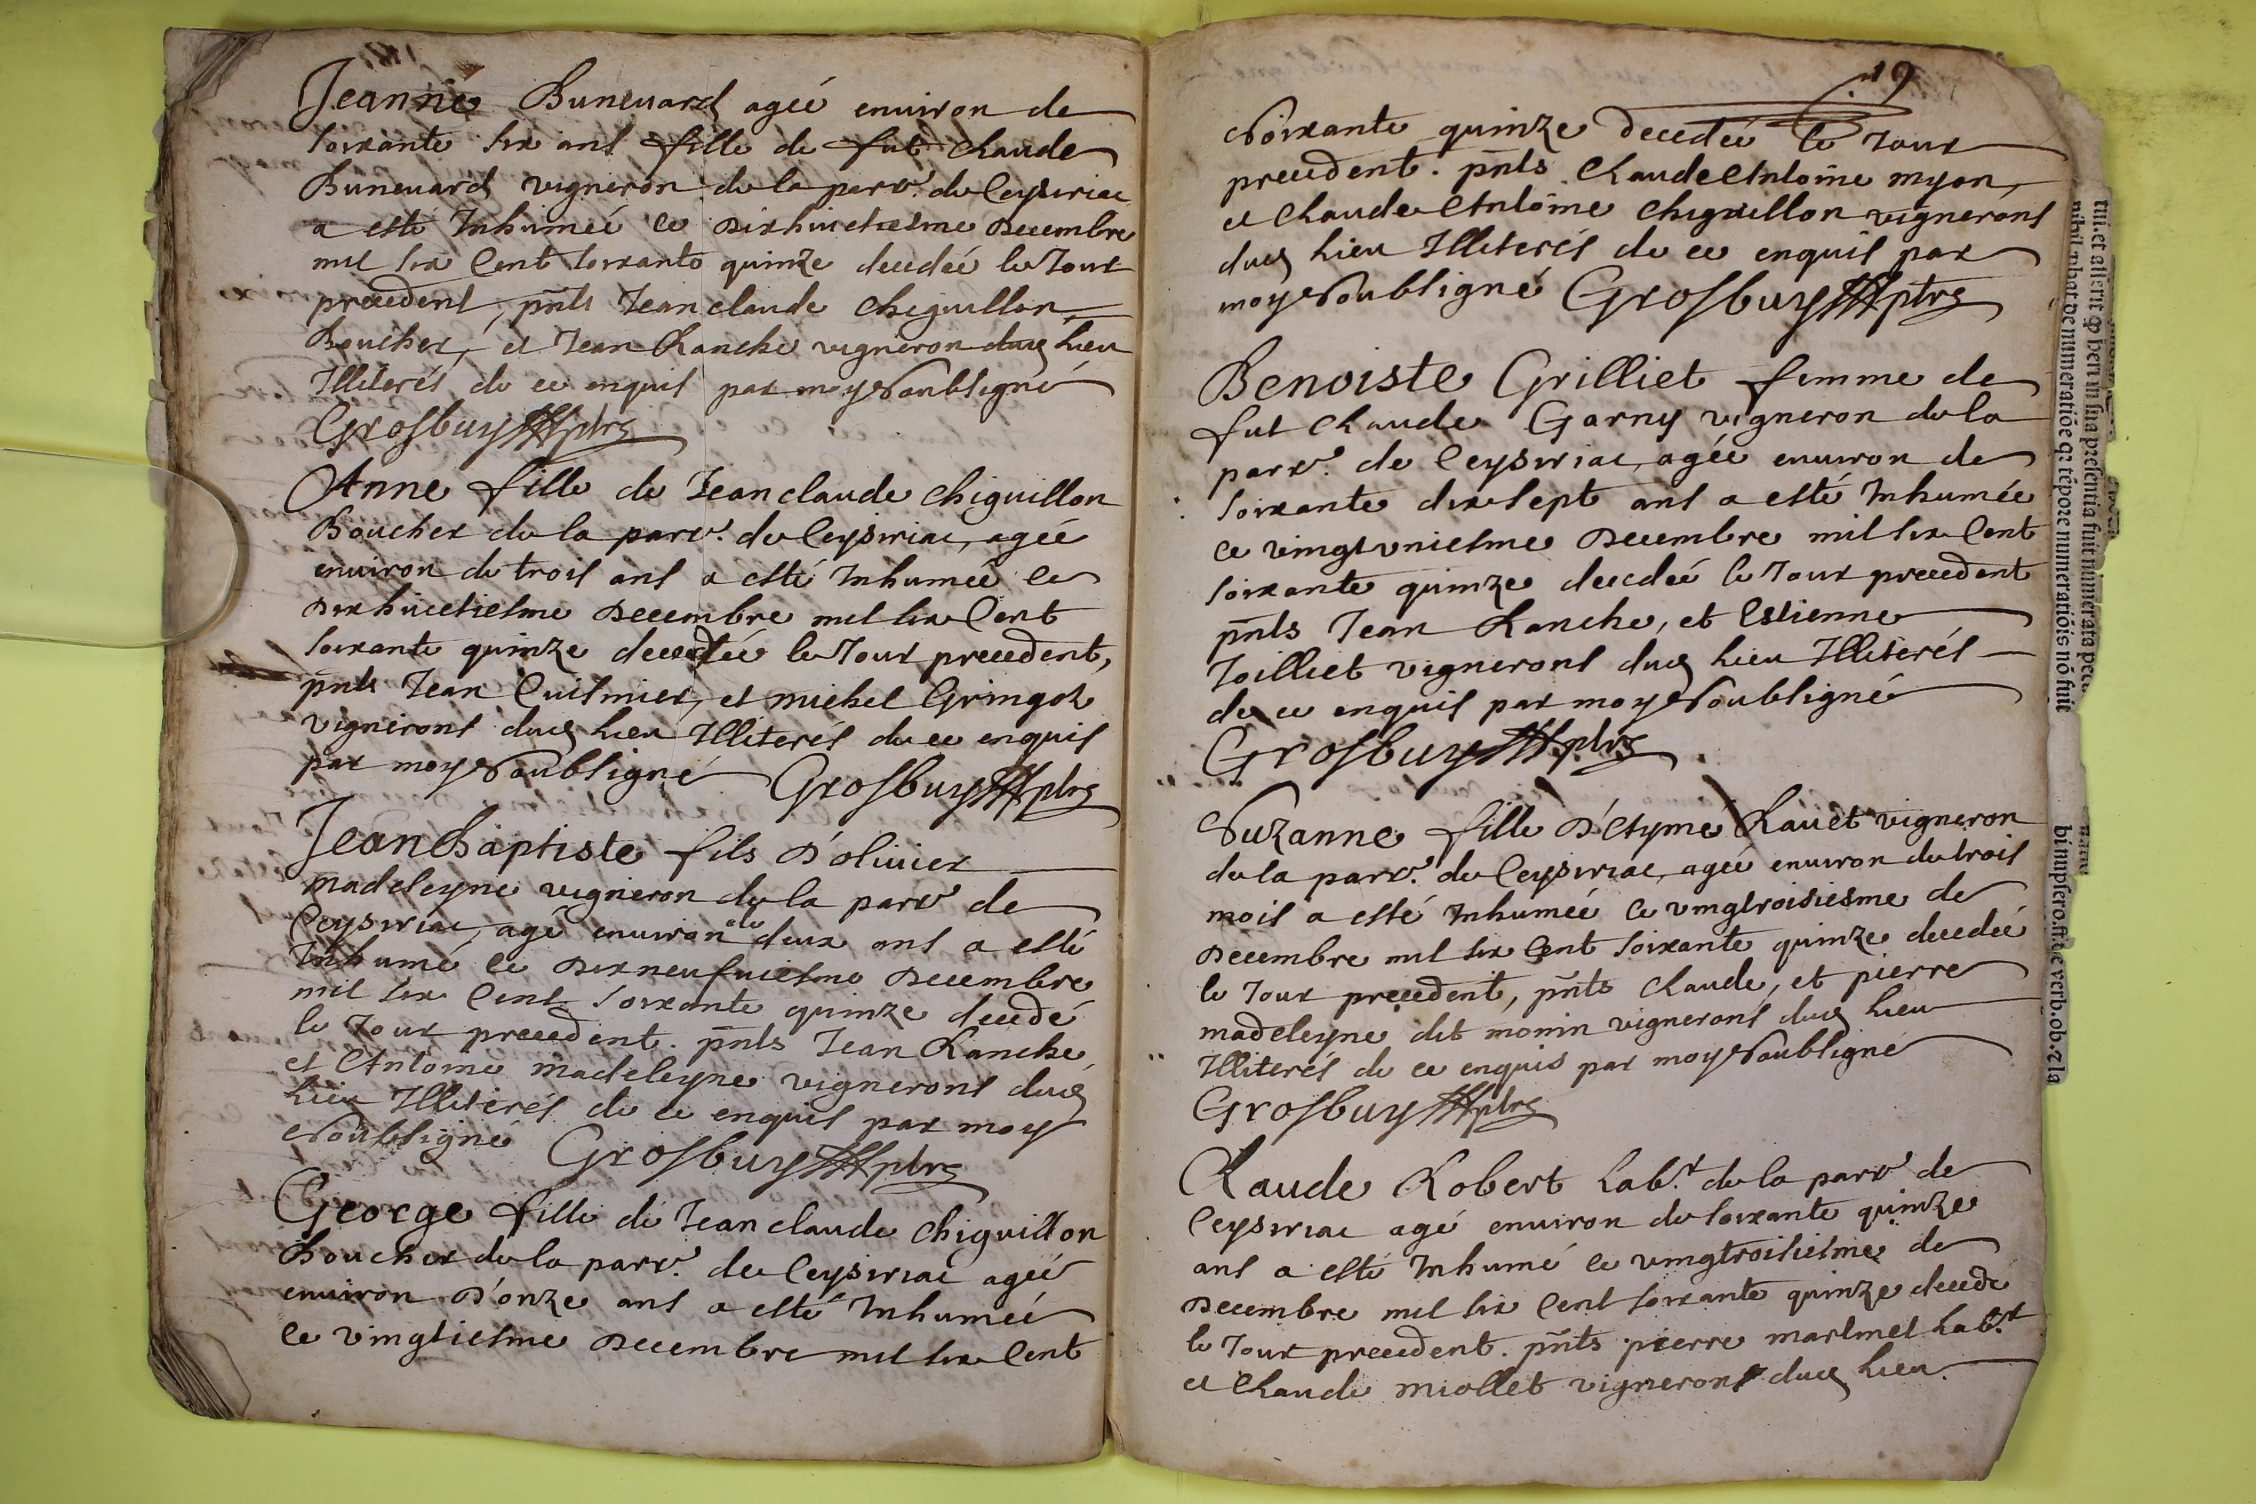 Jeanne Buneuard agée enuiron de
soixante six ans fille de fut Claude
Buneuard vigneron de la parr. de Ceysiria
a esté Inhumée ce Dixhuictiesme Decembre
mil six Cent soixante quinze decedée le Jour
precedent, pnts Jean claude Chiguillon
Boucher, et Jean Ranche vigneron dud lieu
Illiterés de ce enquis par moy Soubsigné
Grosbuy ptre
Anne fille de Jean claude Chiguillon
Boucher de la parr. de Ceysiria, agée
enuiron de trois ans a esté Inhumée ce
Dixhuictiesme Decembre mil six Cent
soixante quinze decedée le Jour precedent,
pnts Jean Cuisinier, et michel Gringoz
vignerons dud lieu Illiterés de ce enquis
par moy Soubsigné Grosbuy ptre
Jean Baptiste fils D'oliuier
madeleyne vigneron de la parr de
Ceysiria, agé enuiron de deux ans a esté
Inhumé ce Dixneufuiesme Decembre
mil six Cent soixante quinze decedé
le Jour precedent. pnts Jean Ranche,
et Antoine madeleyne vignerons dud
lieu Illiterés de ce enquis par moy
Soubsigné Grosbuy ptre
George fille de Jean claude Chiguillon
Boucher de la parr. de Ceysiria agée
enuiron D'onze ans a esté Inhumée
ce vingtiesme Decembre mil six Cent
19
Soixante quinze decedée le Jour
precedent. pnts Claude Antoine myon,
et Claude Antoine Chiguillon vignerons
dud lieu Illiterés de ce enquis par
moy Soubsigné Grosbuy ptre
Benoiste Grilliet femme de
fut Claude Garny vigneron de la
parr. de Ceysiria, agée enuiron de
soixante dix sept ans a esté Inhumée
ce vingtvniesme Decembre mil six Cent
soixante quinze decedée le Jour precedent
pnts Jean Ranche, et Estienne
Joilliet vignerons dud lieu Illiterés
de ce enquis par moy Soubsigné
Grosbuy ptre
Suzanne fille D'Aymé Rauet vigneron
de la parr. de Ceysiria, agée enuiron de trois
mois a esté Inhumée ce vingtroisiesme de
Decembre mil six Cent soixante quinze decedée
le Jour precedent, pnts Claude, et pierre
madeleyne dit monin vignerons dud lieu
Illiterés de ce enquis par moy Soubsigné
Grosbuy ptre
Claude Robert Lab.r de la parr de
Ceysiria agé enuiron de soixante quinze
ans a esté Inhumé ce vingtroisiesme de
Decembre mil six Cent soixante quinze decedé
le Jour precedent. pnts pierre martinet Lab.r
et Claude miollet vignerons dud lieu